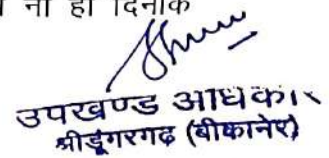 ना हो दिनांक
उपखण्ड अधिकार
श्रीडूंगरगढ़ (बीकानेर)